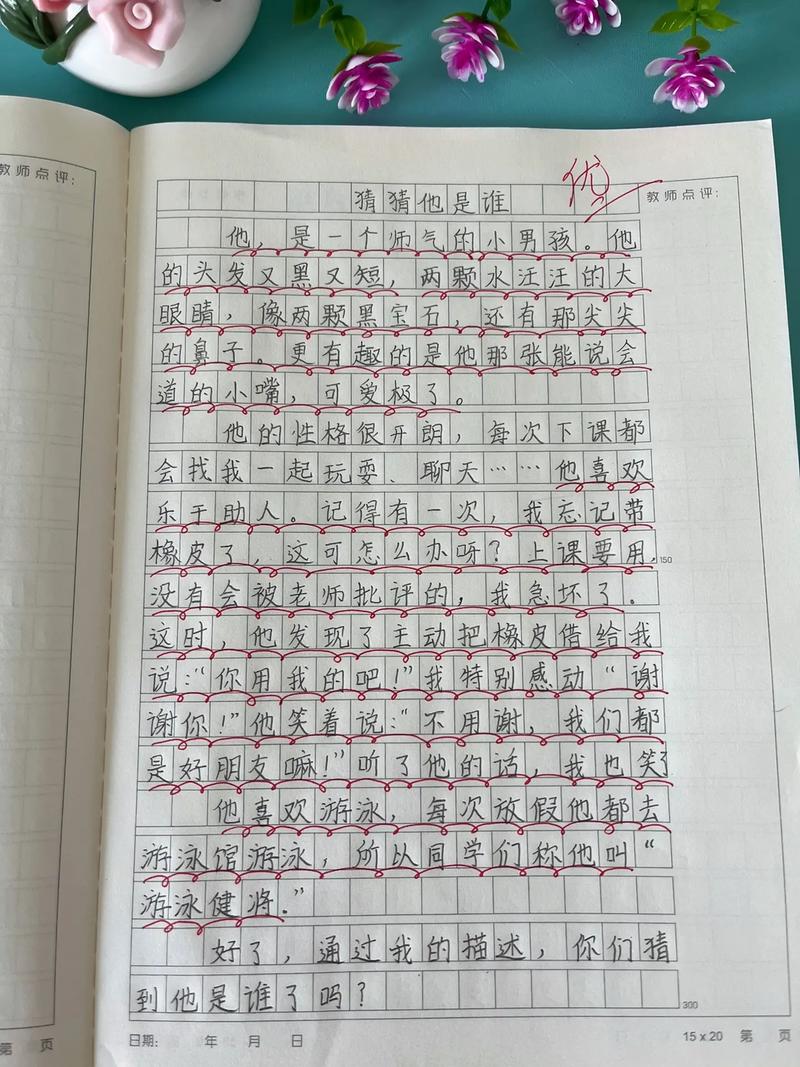 教师点评：
优
教师点评：
猜猜他是谁
他，是一个帅气的小男孩。他
的头发又黑又短，两颗水汪汪的大
眼睛，像两颗黑宝石，还有那尖尖
的鼻子。更有趣的是他那张能说会
道的小嘴，可爱极了。
他的性格很开朗，每次下课都
会找我一起玩耍、聊天……他喜欢
乐于助人。记得有一次，我忘记带
橡皮了，这可怎么办呀？上课要用，
150
没有会被老师批评的，我急坏了。
这时，他发现了主动把橡皮借给我
说：“你用我的吧！”我特别感动“谢
谢你！”他笑着说：“不用谢，我们都
是好朋友嘛！”听了他的话，我也笑了
他喜欢游泳，每次放假他都去
游泳馆游泳，所以同学们称他叫“
游泳健将.”
好了，通过我的描述，你们猜
到他是谁了吗？
300
第 页
日期： 年 月 日
15 x 20 第 页